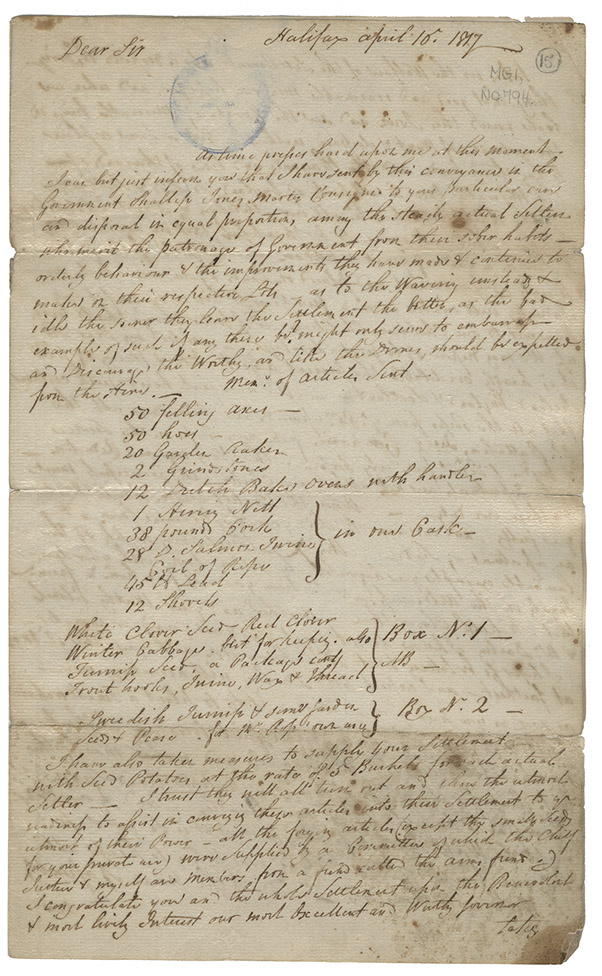 Halifax april 16. 1817
Dear Sir
15
MG1,
No. 794
As time presses hard upon me at this moment
I can but just inform you that I have sent by this conveyance in the
Government Shallop Jones, Master Consigned to your particular care
and disposal in equal proportions among the steady actual Settlers
who merit the patronage of Government from their sober habits —
orderly behaviour & the improvements they have made & continues to
make on their respective Lots as to the Wavering unsteady &
idle the sooner they leave the Settlement the better, as the bad
example of such if any there be, might only serve to embarrass
and Discourage the Worthy, and like the Drones, should be expelled
from the Hive. —
Memo. of articles Sent
50 felling axes —
50 hoes —
20 Garden Rakes
2 Grindstones
12 Dutch Bake ovens with handles
1 Herring Nett
38 pounds Cork
28 Do. Salmon Twine
Coil of Rope
45 lb Lead
in one Cask —
12 Shovels
White Clover Seed Red Clover
Winter Cabbage, best for keeping, also
Turnip Seed, a Package
Trout hooks, Twine, Wax & Thread
Box No. 1 —
AB —
Swedish Turnip & some Garden
Seeds & Pease for Mr. own use
Box No. 2 —
I have also taken measures to supply your Settlement
with Seed Potatoes at the rate of 5 Bushels for each actual
Settler — I trust they will all turn out and shew the utmost
readiness to assist in conveying these articles into their Settlement to ye
utmost of their Power — all the forgoing articles (except the small seeds
for your private use) were supplied by a Committee of which the Chief
Justice & myself are Members from a fund called the arms fund —
I congratulate you and the whole Settlement upon the Benevolent
& most lively Interest our most Excellent and Worthy Governor
takes